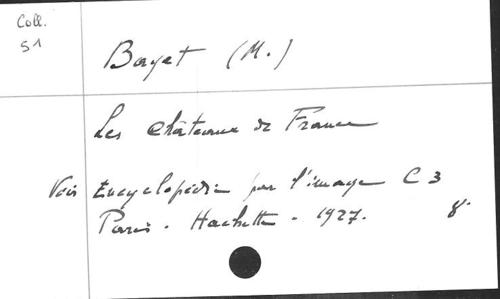 Coll.
51
Bayet (M.)
Les Châteaux de France
Voir Encyclopédie par l'image C 3
Paris. Hachette. 1927. 8°